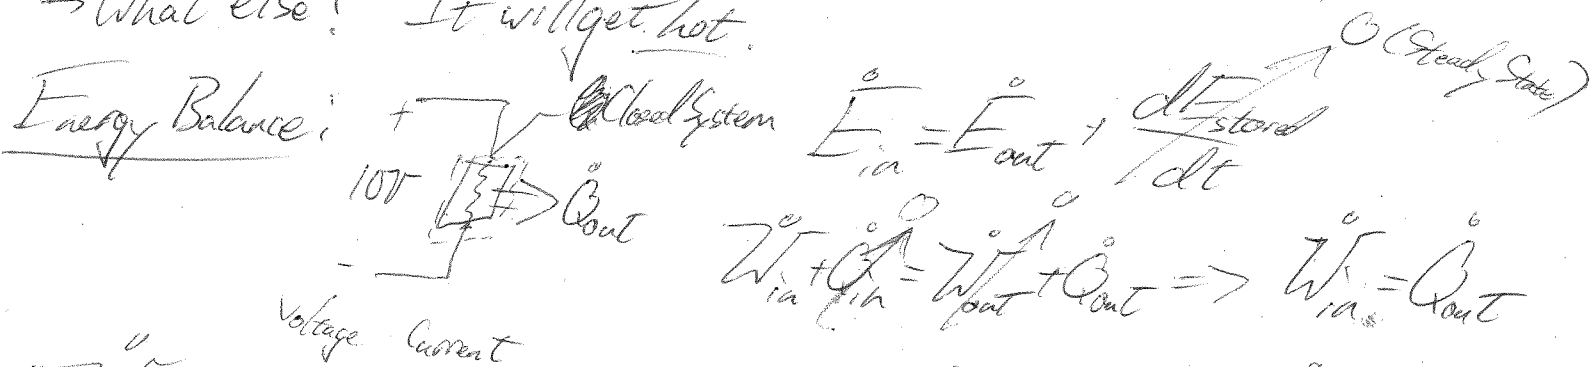 → What else? It will get hot.
Energy Balance:
+ Closed System
10V
Q̇out
-
Ėin = Ėout + dEstored/dt → 0 (Steady State)
Ẇin + Q̇in → 0 = Ẇout → 0 + Q̇out => Ẇin = Q̇out
Voltage Current